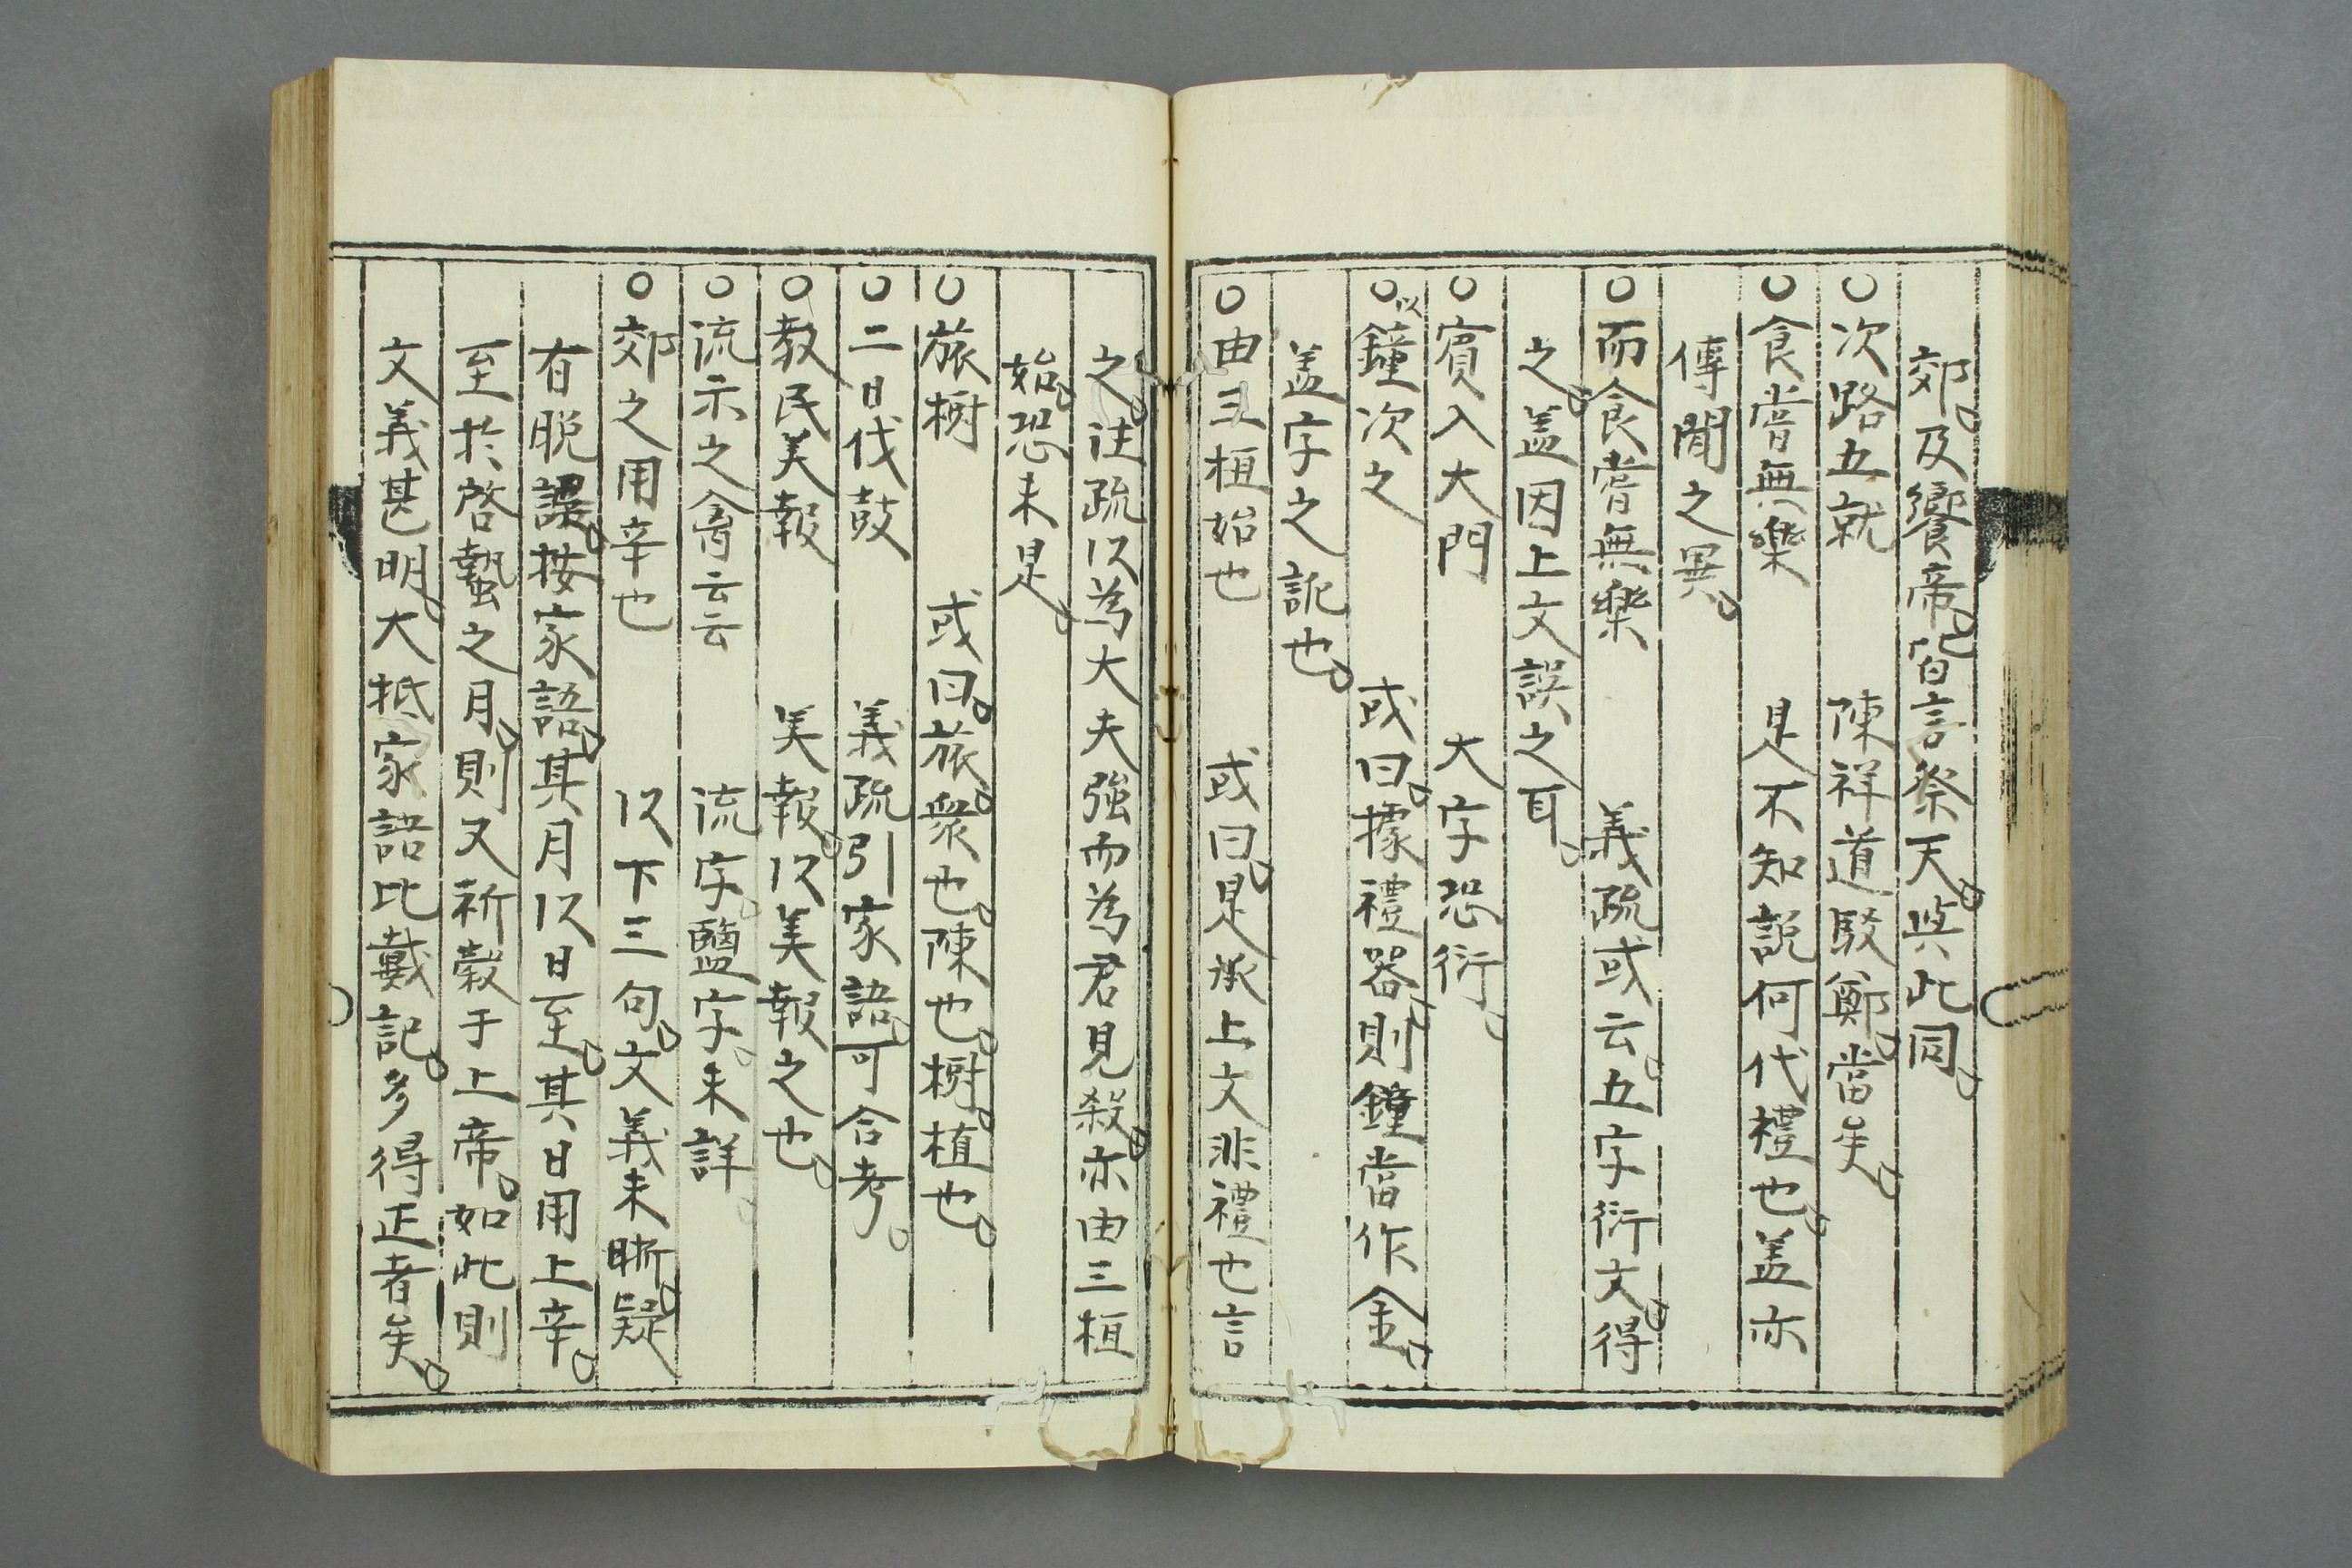 郊。及饗帝。皆言祭天。與此同。
○次路五就　陳祥道駁鄭。當矣。
○食嘗無樂　是不知說何代禮也。盖亦
傳聞之異。
○而食嘗無樂　義疏或云。五字衍文。得
之。盖因上文誤之耳。
○賓入大門　大字恐衍。
○以鐘次之　或曰。據禮器。則鐘當作金。
盖字之訛也。
○由三桓始也　或曰。是承上文非禮也言
之。注疏以為大夫強而為君見殺。亦由三桓
始。恐未是。
○旅樹　或曰。旅。衆也。陳也。樹。植也。
○二日伐鼓　義疏引家語。可合考。
○教民美報　美報。以美報之也。
○流示之禽云云　流字。鹽字。未詳。
○郊之用辛也　以下三句。文義未晣。疑
有脫誤。按家語。其月以日至。其日用上辛。
至於啓蟄之月。則又祈穀于上帝。如此則
文義甚明。大抵家語比戴記。多得正者矣。